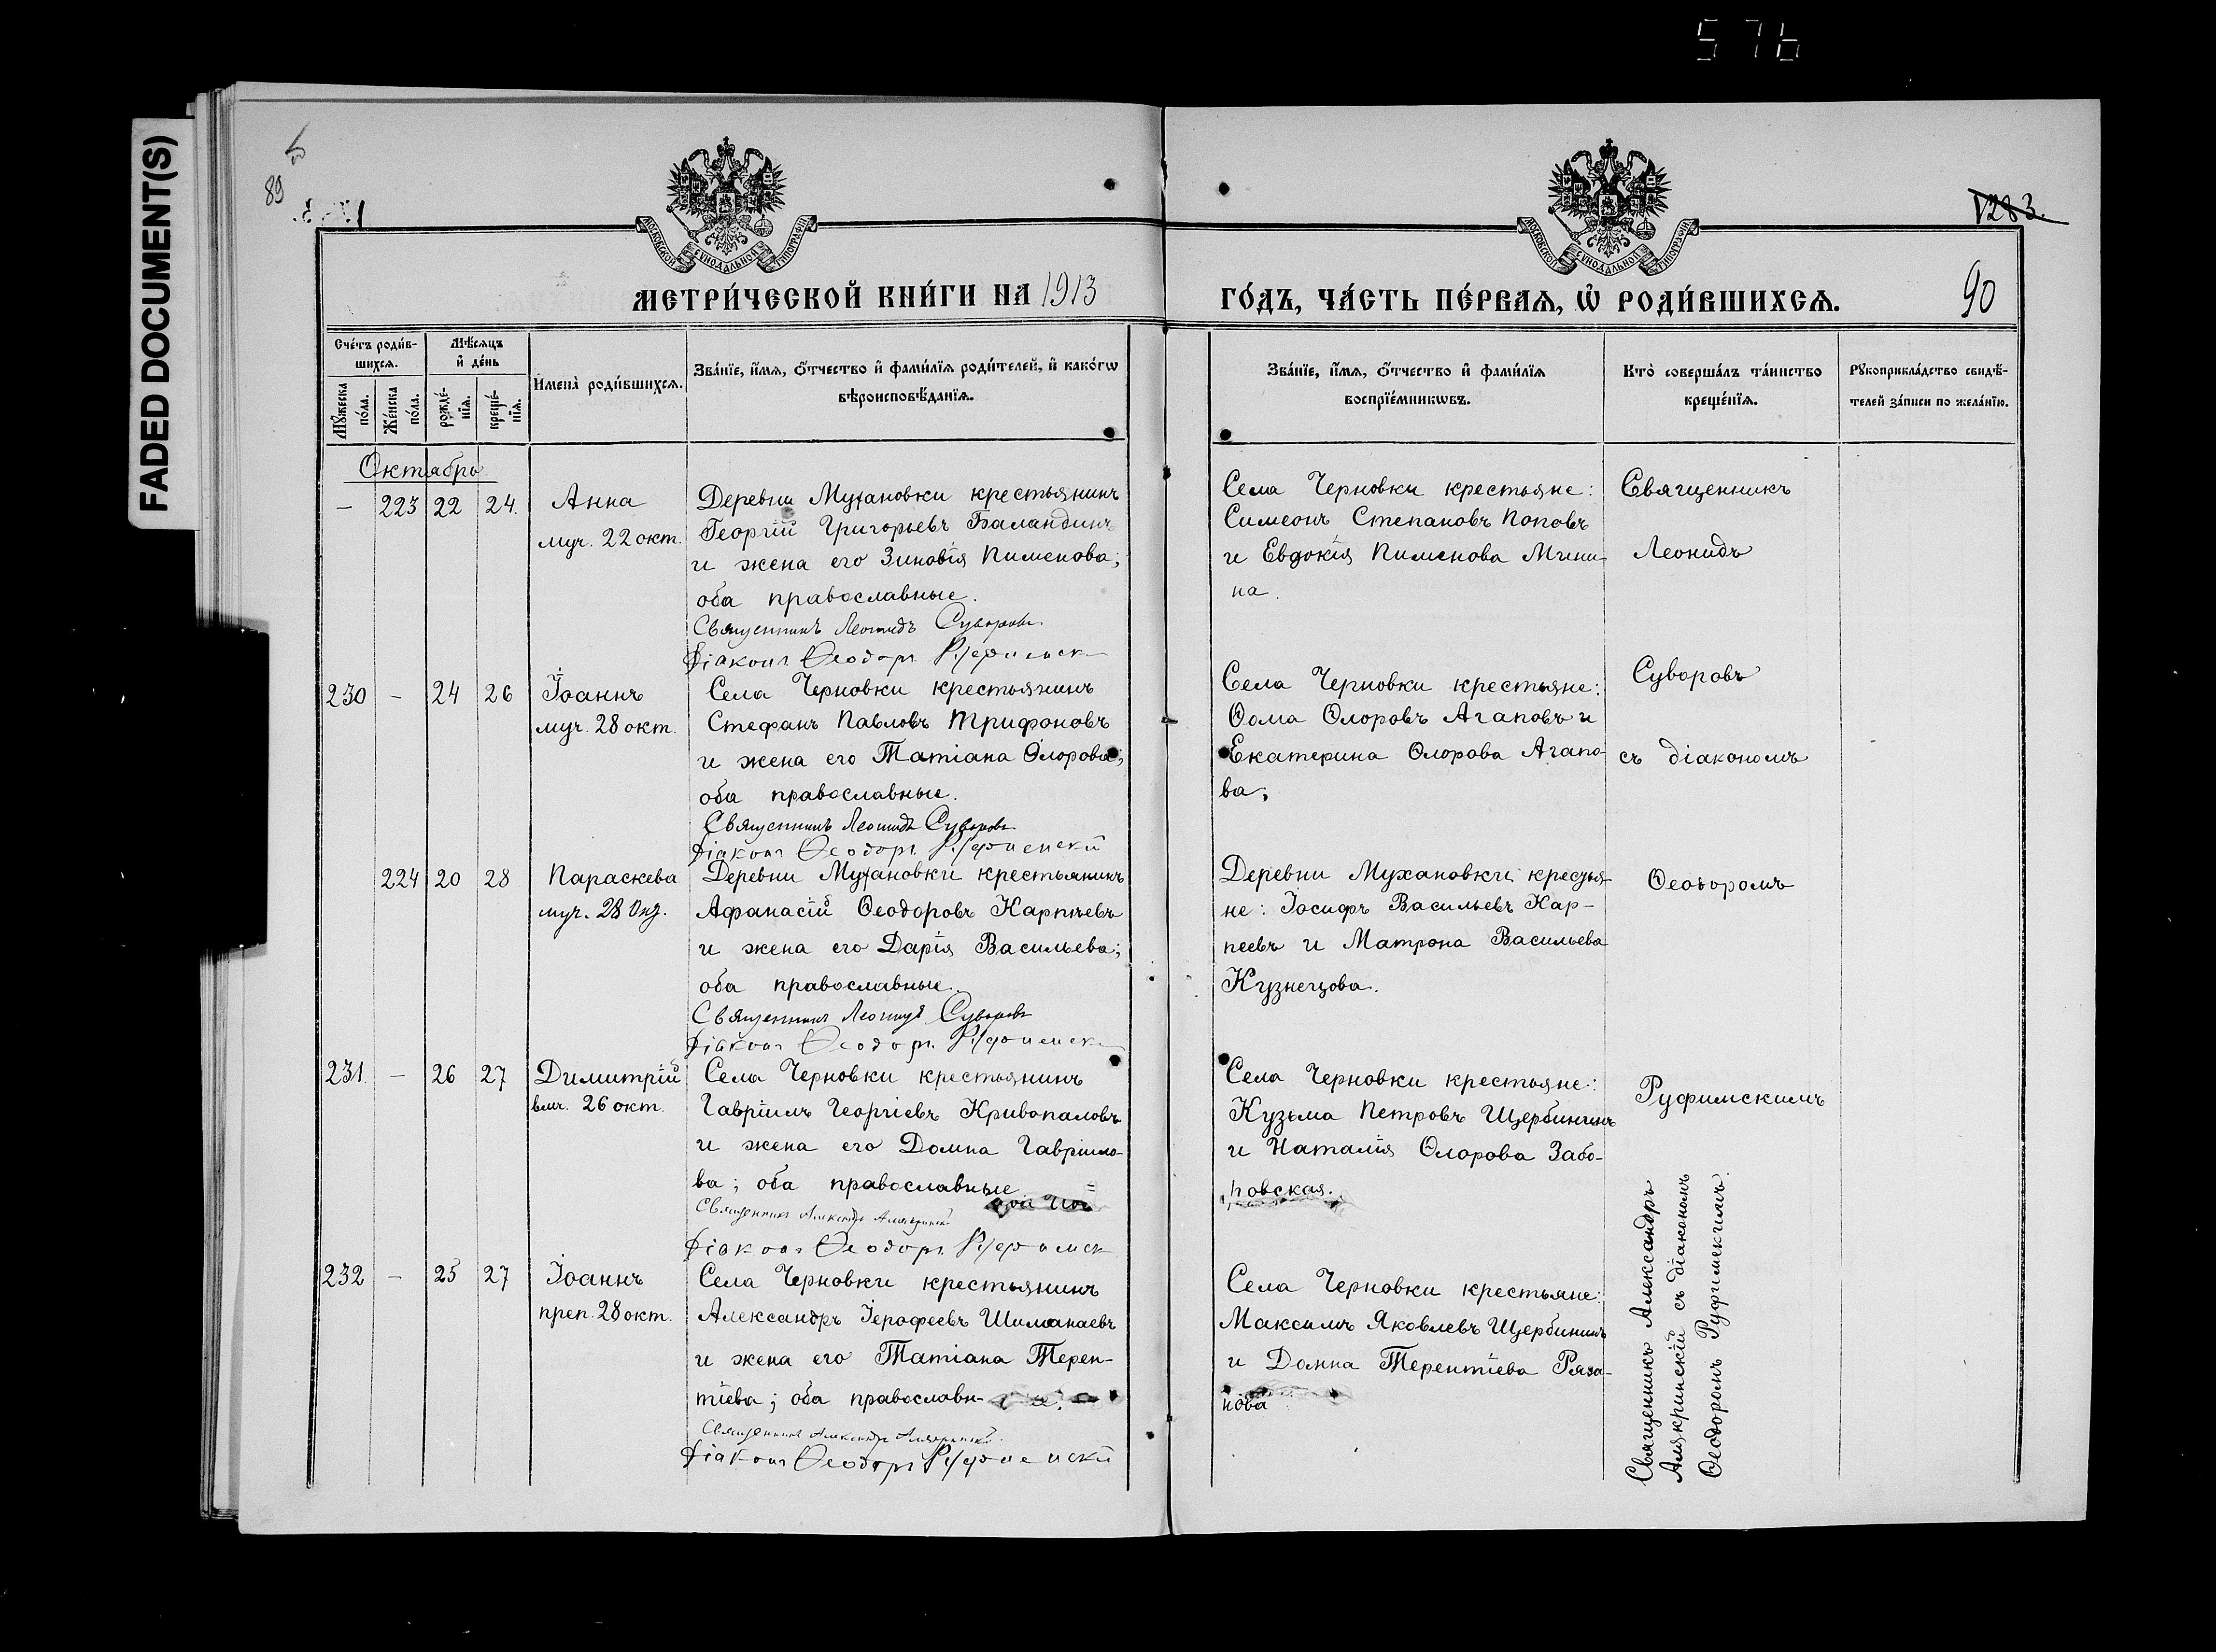 576
FADED DOCUMENT(S)
89
1283.
МОСКОВСКОЙ СѴНОДАЛЬНОЙ ТѴПОГРАФІИ
МОСКОВСКОЙ СѴНОДАЛЬНОЙ ТѴПОГРАФІИ
МЕТРИ́ЧЕСКОЙ КНИ́ГИ НА 1913
ГО́ДЪ, ЧА́СТЬ ПЕ́РВАѦ, Ѡ҆ РОДИ́ВШИХСѦ.
90
Сче́тъ роди́в-
шихсѧ.
Мѣ́сѧцъ
и҆ де́нь
Мꙋ́жеска
по́ла.
Же́нска
по́ла.
рожде́-
нїѧ.
креще́-
нїѧ.
И҆мена̀ роди́вшихсѧ.
Зва́нїе, и҆́мѧ, ѻ҆́тчество и҆ фами́лїѧ роди́телей, и҆ како́гѡ
вѣроисповѣ́данїѧ.
Зва́нїе, и҆́мѧ, ѻ҆́тчество и҆ фами́лїѧ
воспрїе́мникѡвъ.
Кто̀ соверша́лъ та́инство
креще́нїѧ.
Рꙋкоприкла́дство свидѣ́-
телей за́писи по жела́нїю.
Октябрь
— 223 22 24. Анна
муч. 22 окт.
Деревни Мухановки крестьянинъ
Георгій Григорьевъ Баландинъ
и жена его Зиновія Пименова;
оба православные.
Священникъ Леонидъ Суворовъ
Діаконъ Ѳеодоръ Руфимск
Села Черновки крестьяне:
Симеонъ Степановъ Поповъ
и Евдокія Пименова Мини-
на.
Священникъ
Леонидъ
230 — 24 26 Іоаннъ
муч. 28 окт.
Села Черновки крестьянинъ
Стефанъ Павловъ Трифоновъ
и жена его Татіана Ѳлорова;
оба православные.
Священникъ Леонидъ Суворовъ
Діаконъ Ѳеодоръ Руфимскій
Села Черновки крестьяне:
Ѳома Ѳлоровъ Агаповъ и
Екатерина Ѳлорова Агапо-
ва;
Суворовъ
съ діакономъ
224 20 28 Параскева
муч. 28 Окт.
Деревни Мухановки крестьянинъ
Афанасій Ѳеодоровъ Карпѣевъ
и жена его Дарія Васильева;
оба православные.
Священникъ Леонидъ Суворовъ
Діаконъ Ѳеодоръ Руфимск
Деревни Мухановки крестья-
не: Іосифъ Васильевъ Кар-
пеевъ и Матрона Васильева
Кузнецова.
Ѳеодоромъ
231. — 26 27 Димитрій
влмч. 26 окт.
Села Черновки крестьянинъ
Гавріилъ Георгіевъ Кривопаловъ
и жена его Домна Гавріило-
ва; оба православные
Священникъ Александръ Алякринскій
Діаконъ Ѳеодоръ Руфимск
Села Черновки крестьяне:
Кузьма Петровъ Щербининъ
и Наталія Ѳлорова Забо-
ровская.
Руфимскимъ
232 — 25 27 Іоаннъ
преп. 28 окт.
Села Черновки крестьянинъ
Александръ Іерофеевъ Шиманаевъ
и жена его Татіана Терен-
тіева; оба православн-
Священникъ Александръ Алякринскій
Діаконъ Ѳеодоръ Руфимскій
Села Черновки крестьяне:
Максимъ Яковлевъ Щербининъ
и Домна Терентіева Ряза-
нова
Священникъ Александръ
Алякринскій съ діакономъ
Ѳеодоромъ Руфимскимъ